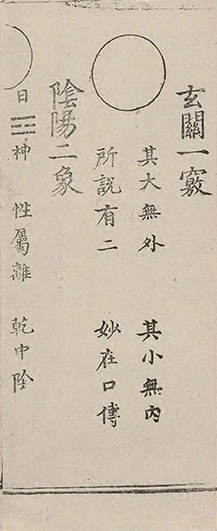 玄關一竅
其大無外 其小無內
所說有二 妙在口傳
陰陽二象
日 ☲ 神 性屬離 乾中陰